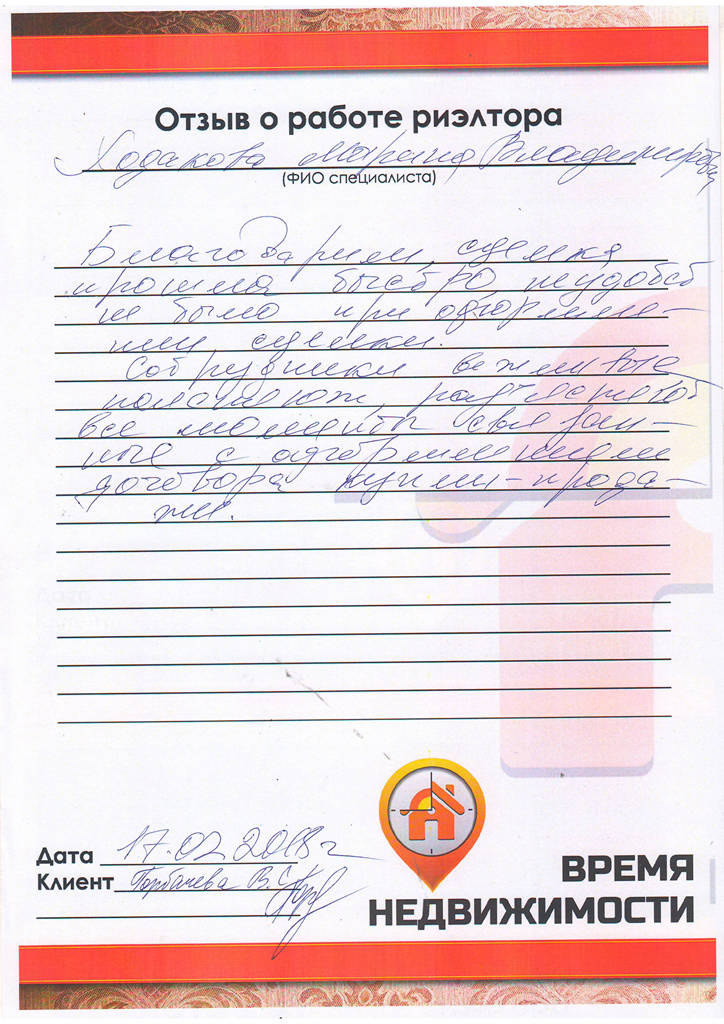 Отзыв о работе риэлтора
Ходакова Марина Владимировна
(ФИО специалиста)
Благодарим, сделка
прошла быстро, неудобств
не было при оформле-
нии сделки.
Сотрудники вежливые
все моменты связан-
ные с оформлением
договора купли-прода-
жи.
Дата 17.02.2018 г
Клиент Горбачева В.С.
ВРЕМЯ
НЕДВИЖИМОСТИ